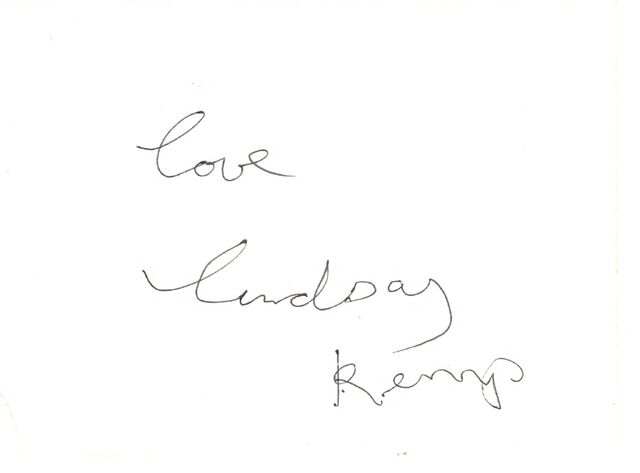 love
lindsay
Kemp